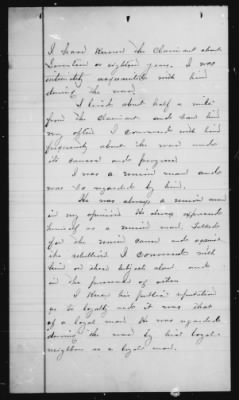 I have known the Claimant about
seventeen or eighteen years. I was
intimately acquainted with him
during the war.
I lived about half a mile
from the Claimant and saw him
very often I conversed with him
frequently about the war and
its causes and progress
I was a union man and
was so regarded by him.
He was always a union man
in my opinion He always expressed
himself as a union man, Talked
for the union cause and against
the rebellion I conversed with
him on these subjects alone and
in the presence of others
I knew his public reputation
as to loyalty and it was that
of a loyal man He was regarded
during the war by his loyal
neighbors as a loyal man.